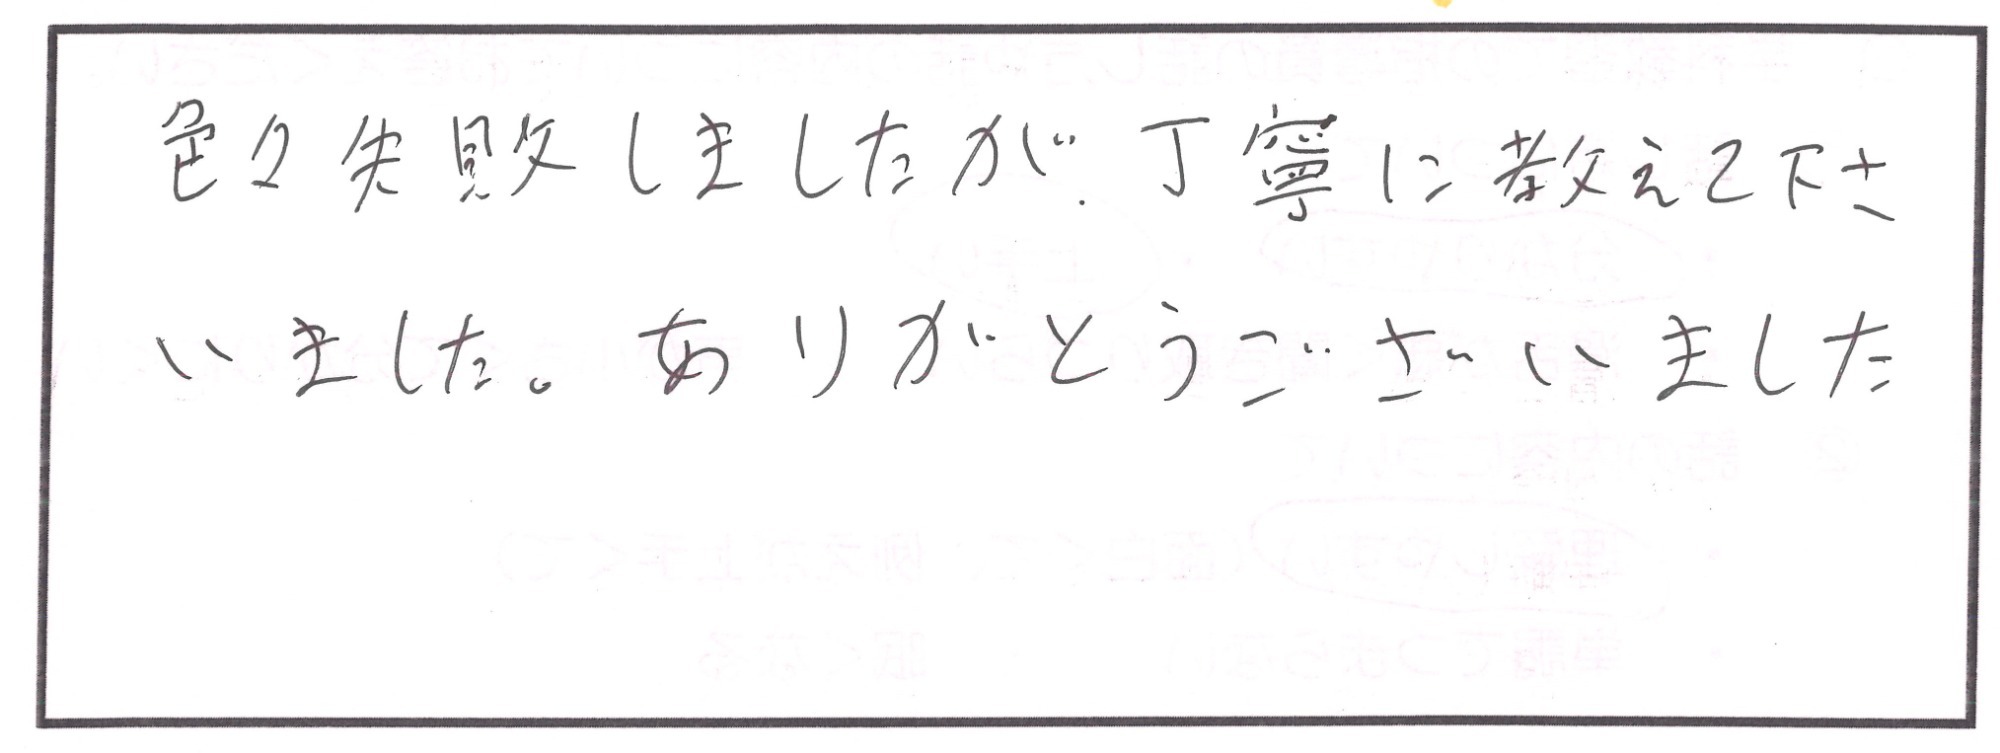 色々失敗しましたが、丁寧に教えて下さ
いました。ありがとうございました